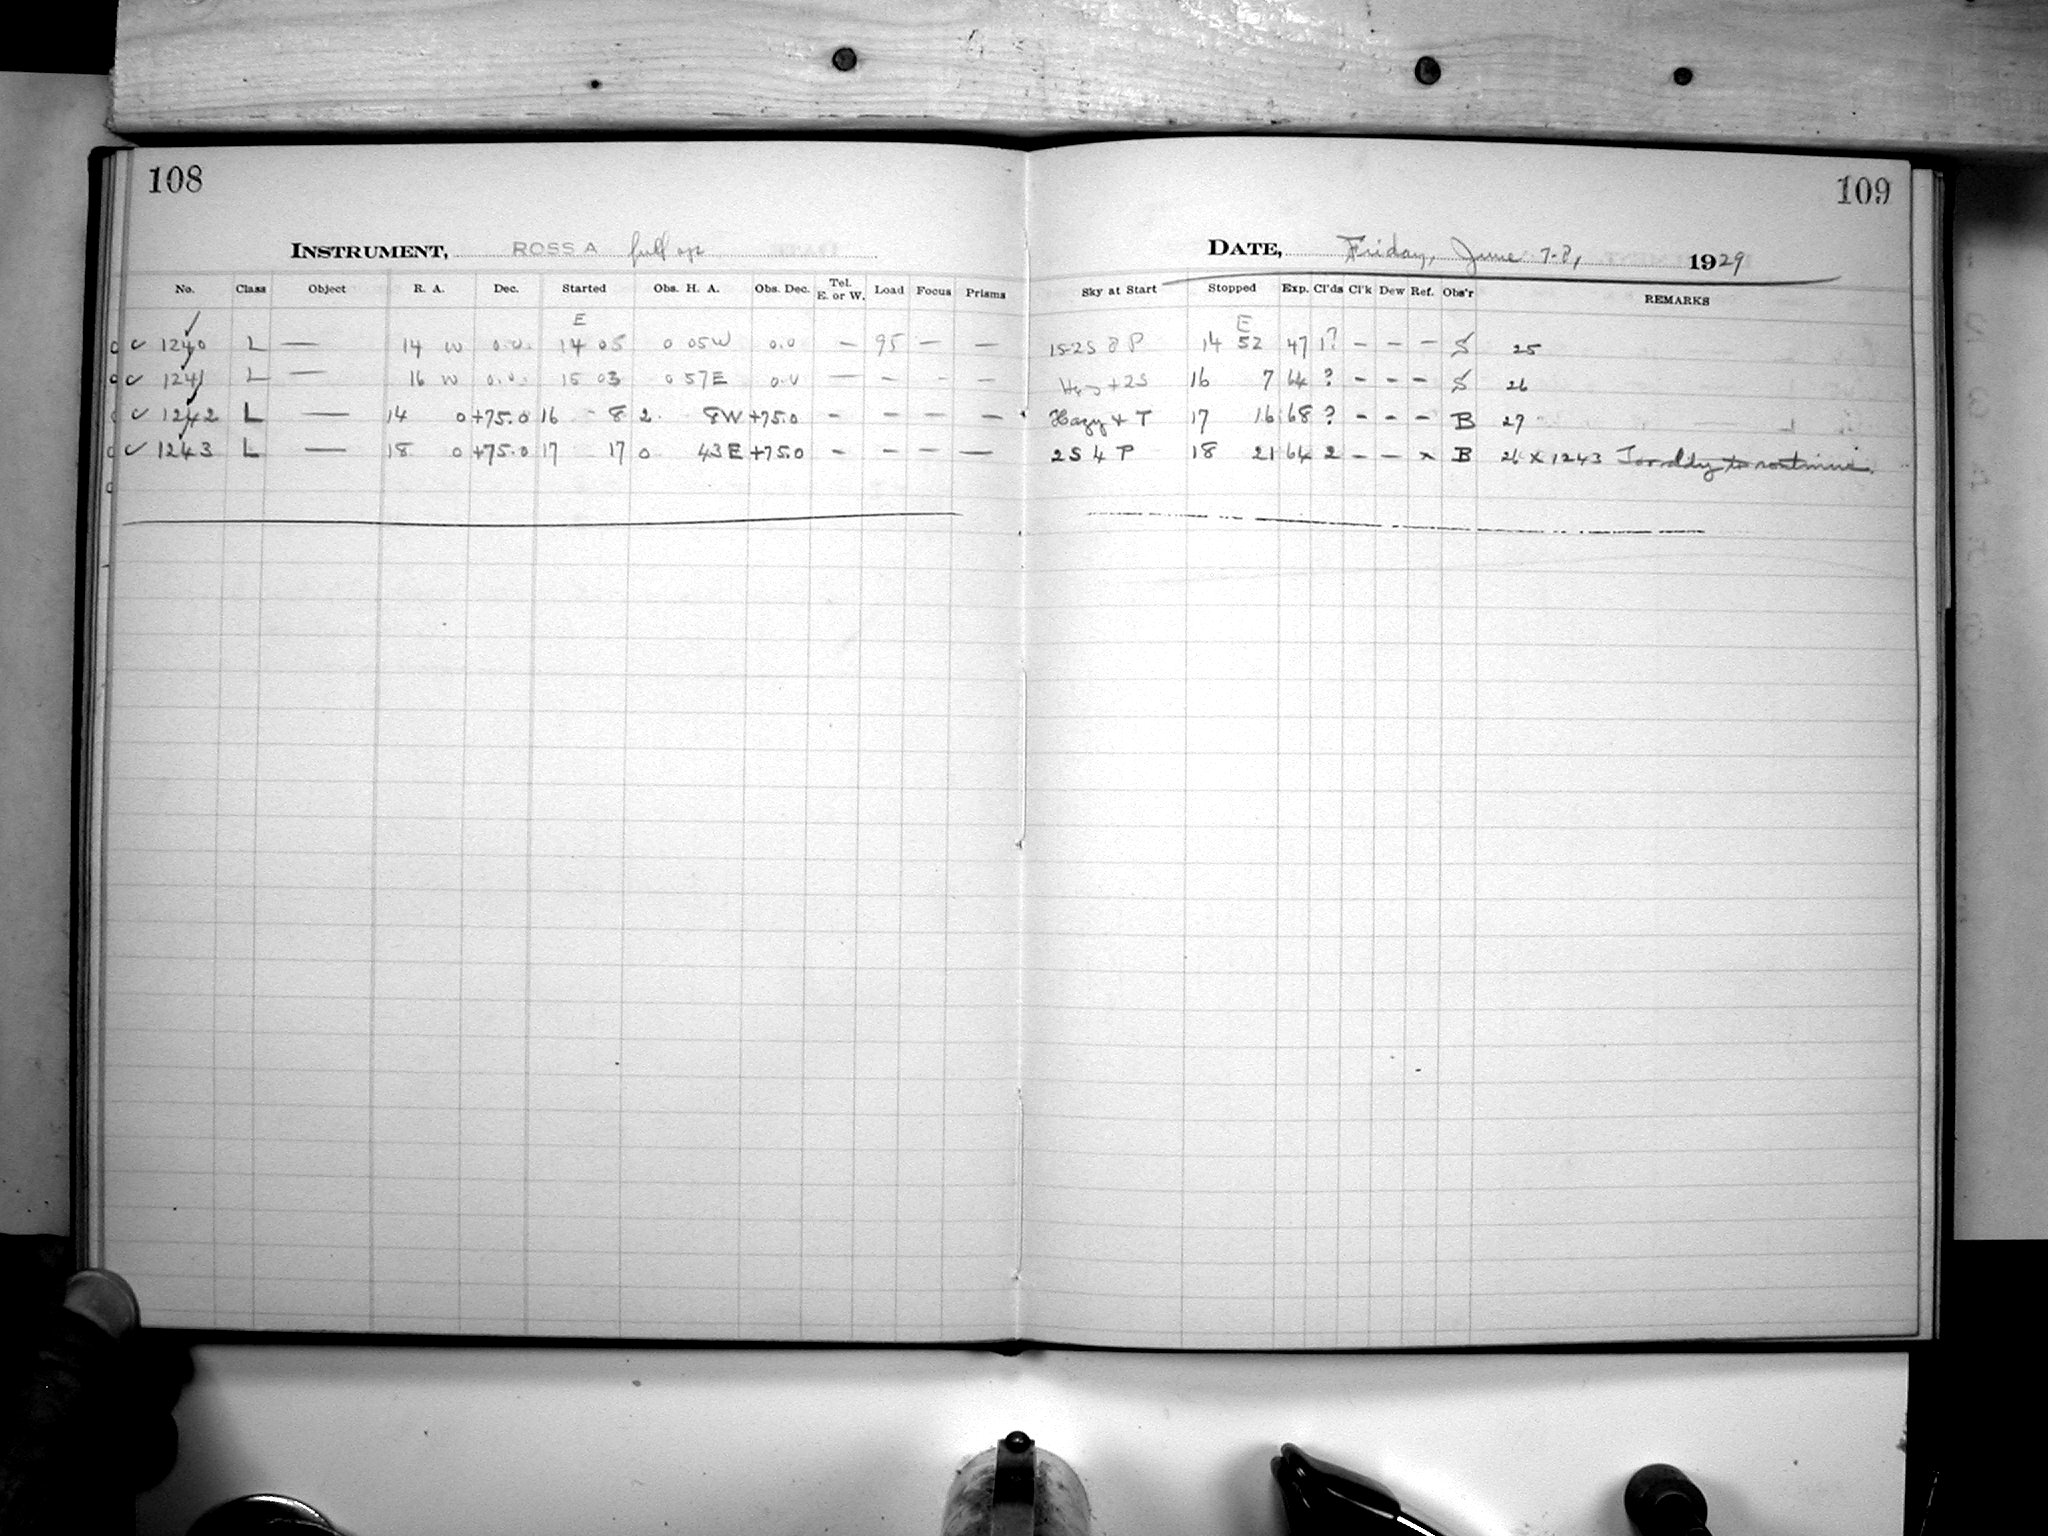 108
INSTRUMENT, ROSS A full ap
No. Class Object R. A. Dec. Started Obs. H. A. Obs. Dec. Tel. E. or W. Load Focus Prisms
E
✓ 1240 L — 14 W 0.0 14 05 0 05W 0.0 — 95 — —
✓ 1241 L — 16 W 0.0 15 03 0 57E 0.0 — - - —
✓ 1242 L — 14 0 +75.0 16 8 2 8W +75.0 - - - —
✓ 1243 L — 18 0 +75.0 17 17 0 43E +75.0 - - - —
109
DATE, Friday, June 7-8, 1929
Sky at Start Stopped Exp. Cl'ds Cl'k Dew Ref. Obs'r REMARKS
E
15-2S 8 P 14 52 47 1? - - - S 25
+2S 16 7 64 ? - - - S 26
Hazy & T 17 16 68 ? - - - B 27
2S 4 P 18 21 64 2 - - x B 26 x 1243